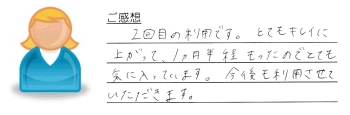 ご感想
2回目の利用です。とてもキレイに
上がって、1ヵ月半経もったのでとても
気に入っています。今後も利用させて
いただきます。